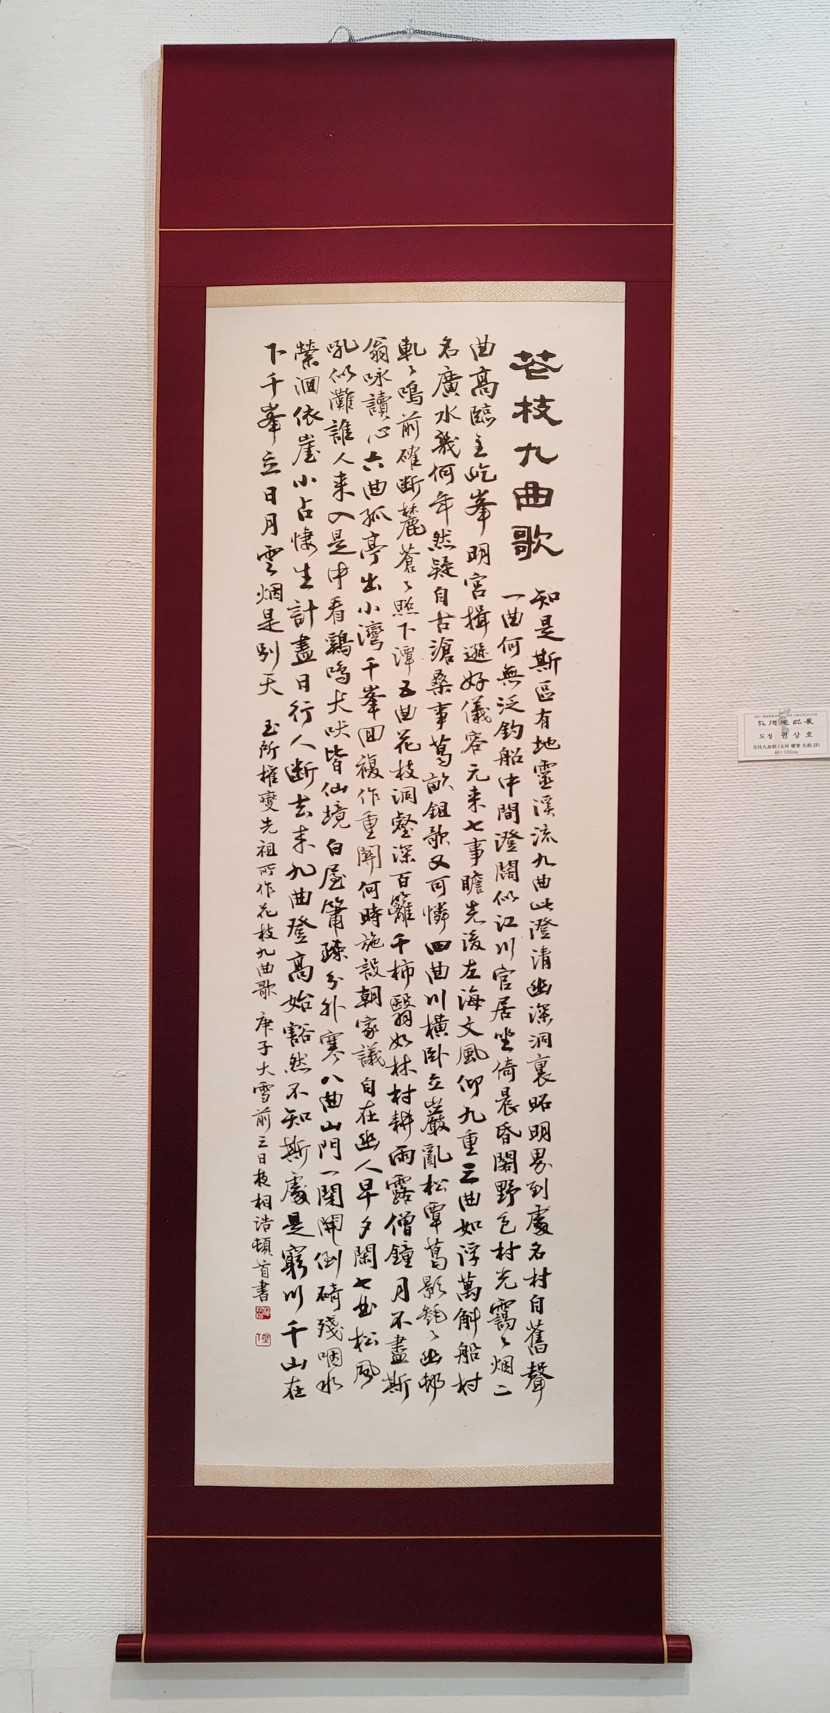 花枝九曲歌
知是斯區有地靈溪流九曲此澄清幽深洞裏昭明界到處名村自舊聲
一曲何無泛釣船中間澄闊似江川官居坐倚晨昏閣野色村光靄々烟二
曲高臨主屹峯明宮揖遜好儀容元来七事瞻先後左海文風仰九重三曲如浮萬斛船村
名廣水幾何年然疑自古滄桑事萬畝鋤歌又可憐四曲川橫臥立巖亂松覃葛影毵々幽邨
軋々鳴前確斷麓蒼々照下潭五曲花枝洞壑深百籬千柿翳如林村耕雨露僧鐘月不盡斯
翁咏讀心六曲孤亭出小灣千峯回複作重關何時施設朝家議自在幽人早夕閑七曲松風
吼似灘誰人来入是中看鷄鳴犬吠皆仙境白屋簫疎分外寒八曲山門一閑開倒碕殘咽水
縈洄依崖小占悽生計盡日行人斷去来九曲登高始豁然不知斯處是窮川千山在
下千峯立日月雲烟是別天 玉所權燮先祖所作花枝九曲歌 庚子大雪前三日夜相浩頓首書
도정 권상호